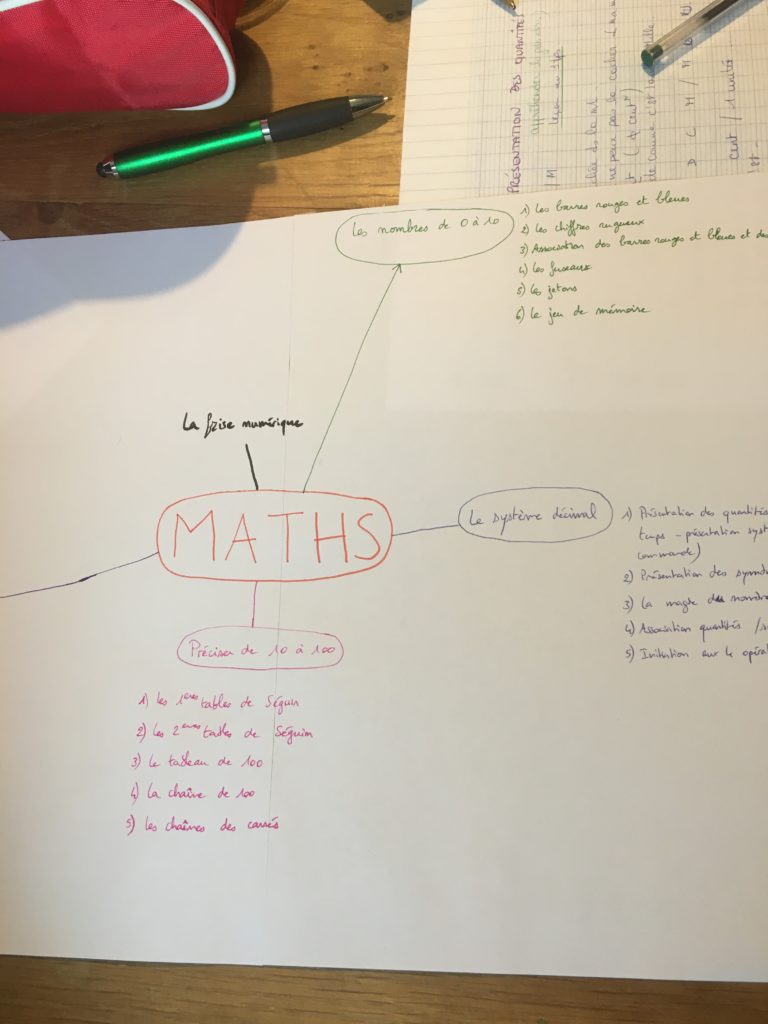 PRÉSENTATION DES QUANTITÉS
Leçon en 3 tps
D C M / M
cent / 1 unité
Les nombres de 0 à 10
1) Les barres rouges et bleues
2) Les chiffres rugueux
3) Association des barres rouges et bleues et des
4) Les fuseaux
5) Les jetons
6) Le jeu de mémoire
La frise numérique
MATHS
Le système décimal
1) Présentation des quantités
temps - présentation syst
commande)
2) Présentation des symb
3) La magie du nombre
4) Association quantités /
5) Initiation aux 4 opéra
Préciser de 10 à 100
1) Les 1ères tables de Séguin
2) Les 2èmes tables de Séguin
3) Le tableau de 100
4) La chaîne de 100
5) Les chaînes des carrés